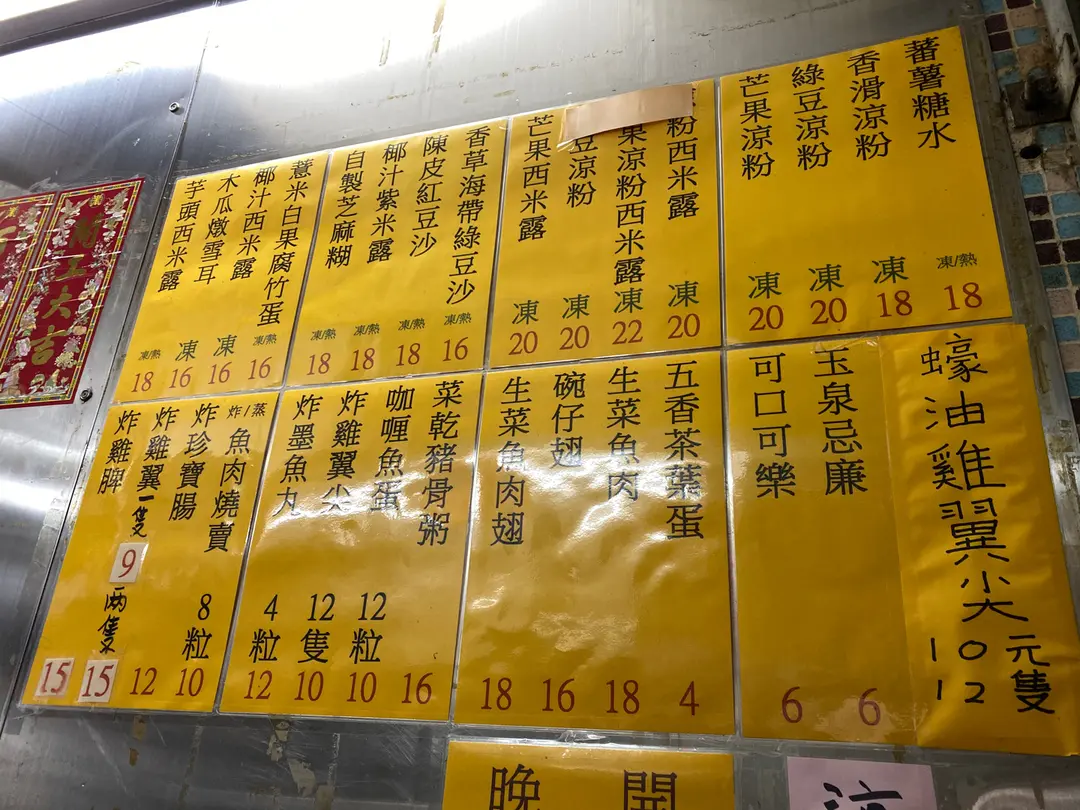 蕃薯糖水 凍/熱 18
香滑涼粉 凍 18
綠豆涼粉 凍 20
芒果涼粉 凍 20
粉西米露 凍 20
果涼粉西米露 凍 22
豆涼粉 凍 20
芒果西米露 凍 20
香草海帶綠豆沙 凍/熱 16
陳皮紅豆沙 凍/熱 18
椰汁紫米露 凍/熱 18
自製芝麻糊 凍/熱 18
薏米白果腐竹蛋 凍/熱 16
椰汁西米露 凍 16
木瓜燉雪耳 凍 16
芋頭西米露 凍/熱 18
蠔油雞翼尖
10元
12隻
玉泉忌廉 6
可口可樂 6
五香茶葉蛋 4
生菜魚肉 18
碗仔翅 16
生菜魚肉翅 18
菜乾豬骨粥 16
咖喱魚蛋 12粒 10
炸雞翼尖 12隻 10
炸墨魚丸 4粒 12
炸/蒸 魚肉燒賣 8粒 10
炸珍寶腸 12
炸雞翼 一隻 9 兩隻 15
炸雞脾 15
工大吉
開
晚